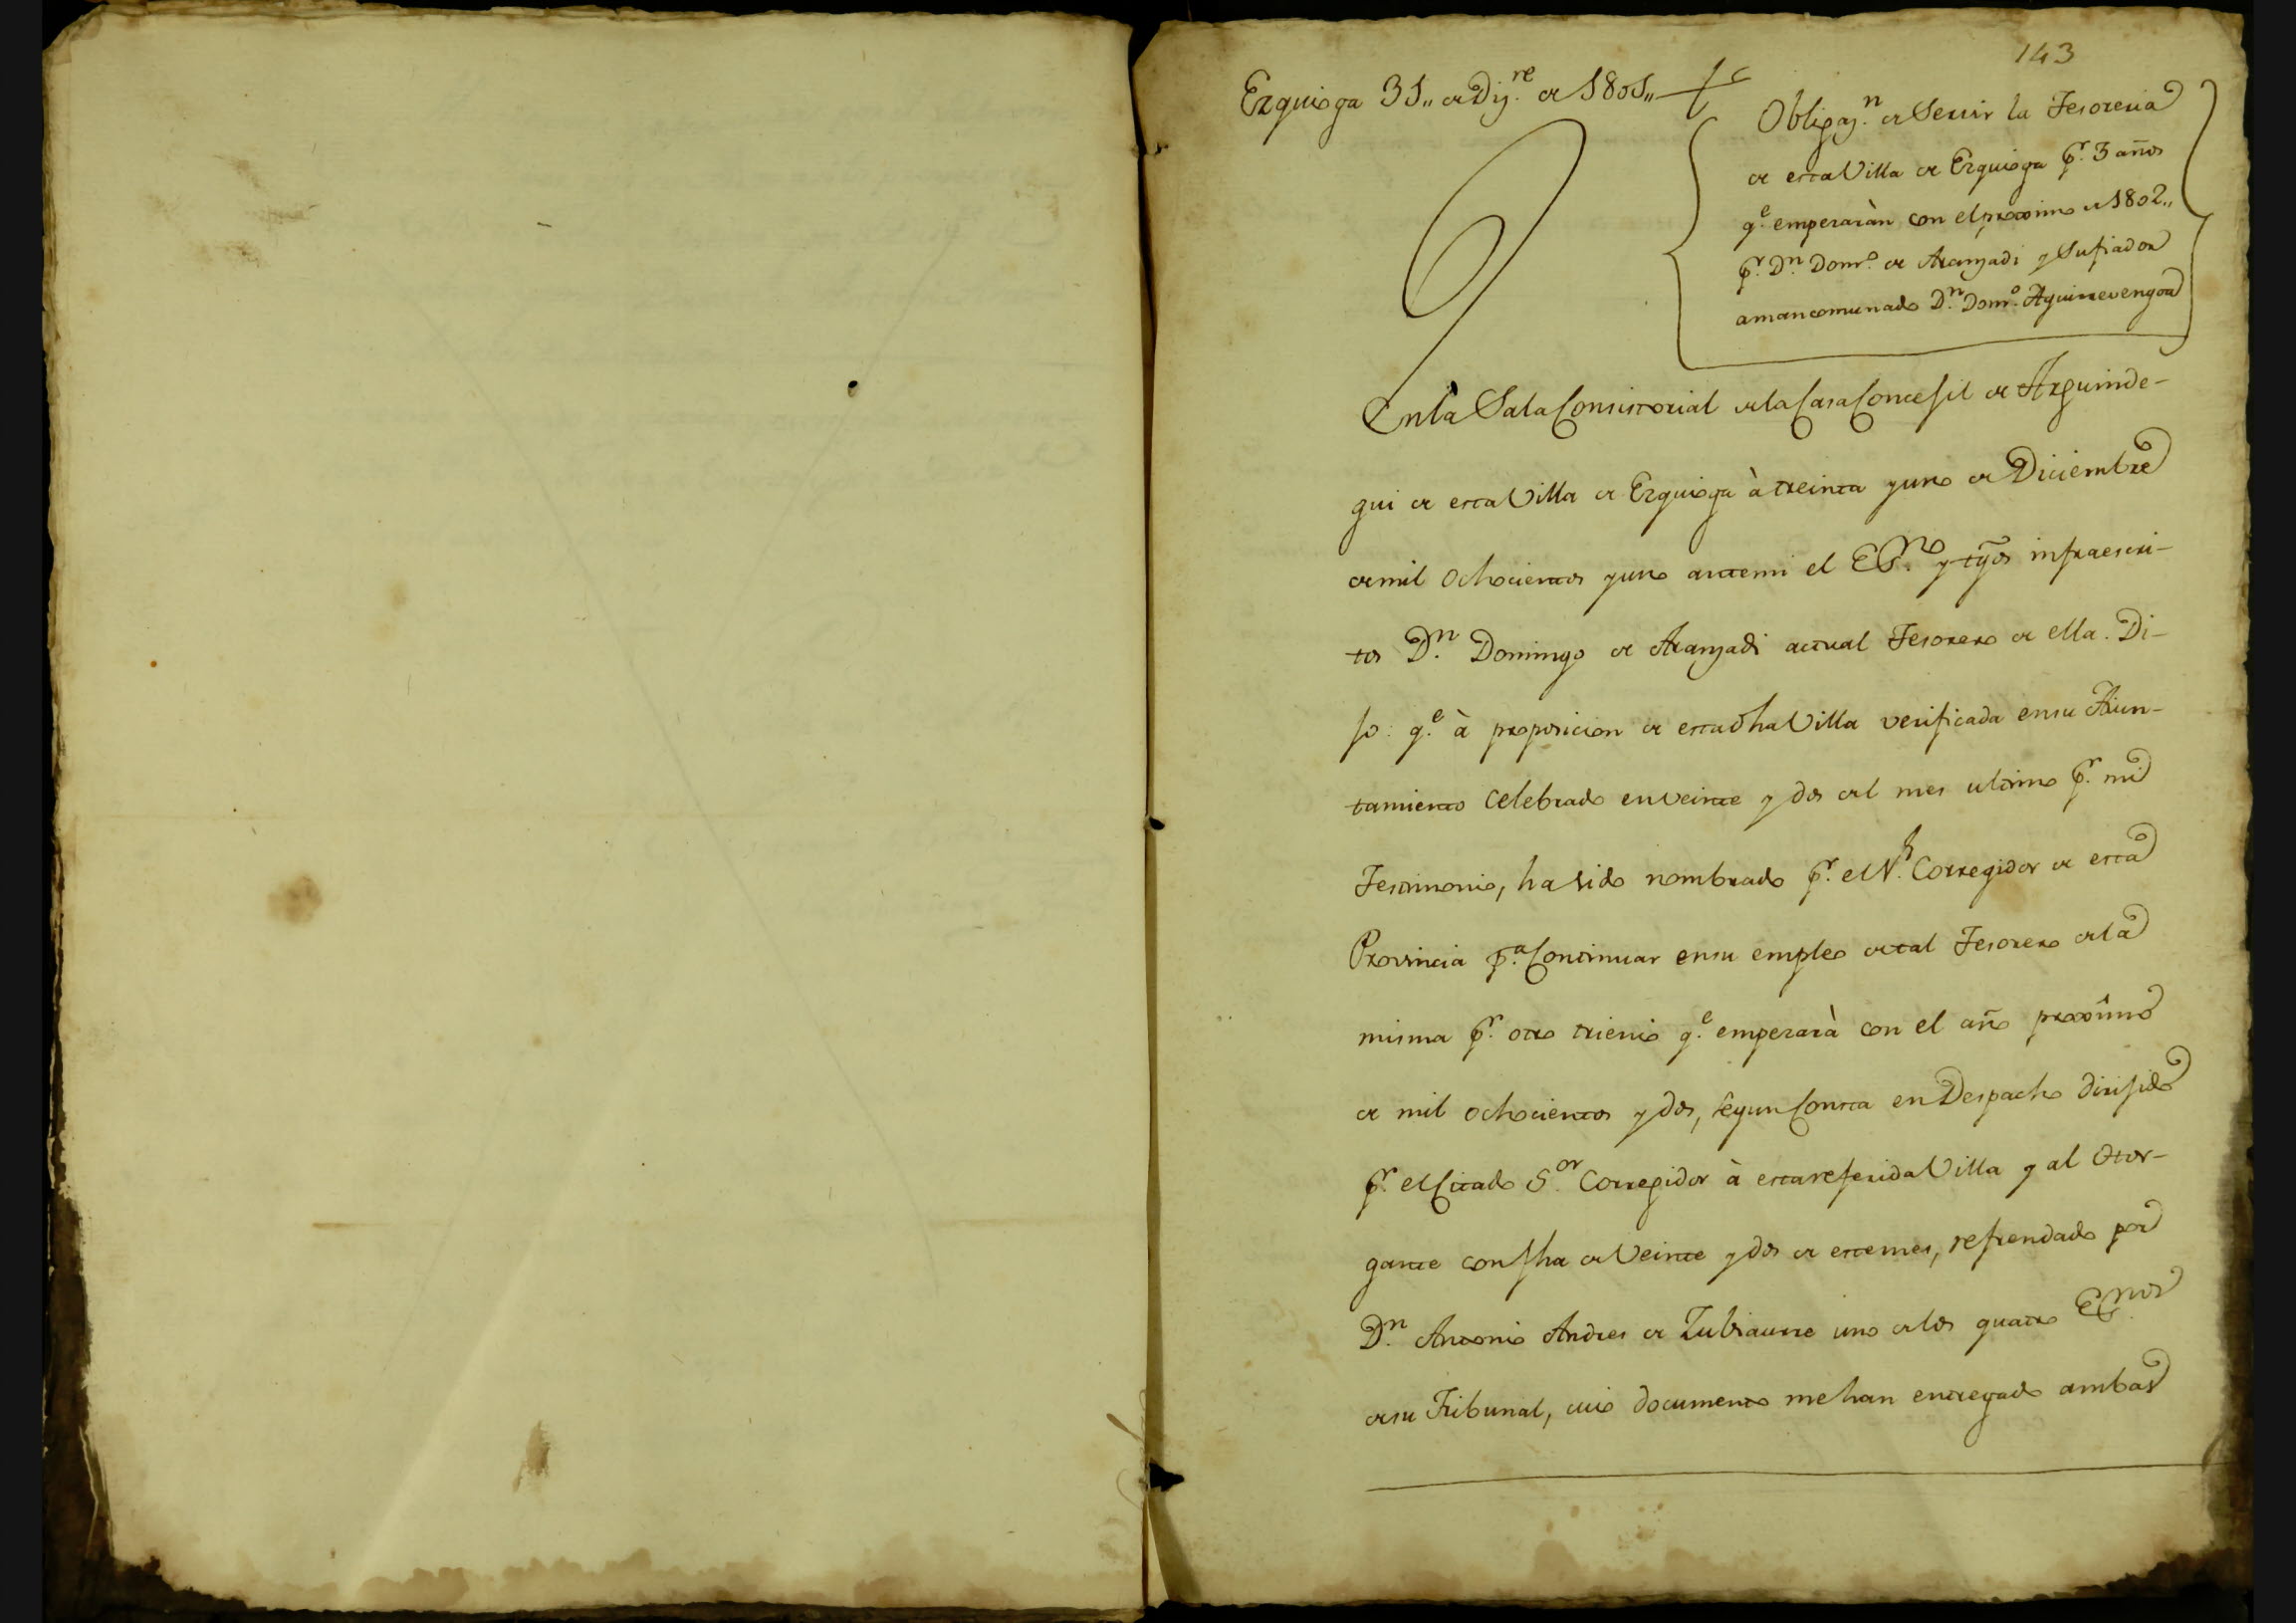 143
Ezquioga 31,, de Diz.re de 1801,,
Obligaz.n de Servir la Tesoreria
de esta Villa de Ezquioga p.r 3 años
q.e empezaràn con el proximo de 1802,,
p.r D.n Dom.o de Aranzadi y Su fiador
amancomunado D.n Dom.o Aguirrevengoa
En la Sala Consistorial de la Casa Concejil de Arguinde-
gui de esta Villa de Ezquioga à treinta y uno de Diciembre
de mil ochocientos y uno ante mi el Es.no y tgos infraescri-
tos D.n Domingo de Aranzadi actual Tesorero de ella. Di-
jo: q.e à proposicion de esta dha Villa verificada en su Aiun-
tamiento celebrado en veinte y dos del mes ultimo p.r mi
Testimonio, ha sido nombrado p.r el S.r Corregidor de esta
Provincia p.a Continuar en su empleo de tal Tesorero de la
misma p.r otro trienio q.e empezarà con el año proximo
de mil ochocientos y dos, segun Consta en Despacho dirijido
p.r el Citado S.or Corregidor à esta referida Villa y al Otor-
gante con fha de Veinte y dos de este mes, refrendado por
D.n Antonio Andres de Zubiaurre uno de los quatro Es.nos
de su Tribunal, cuio documento me han entregado ambas